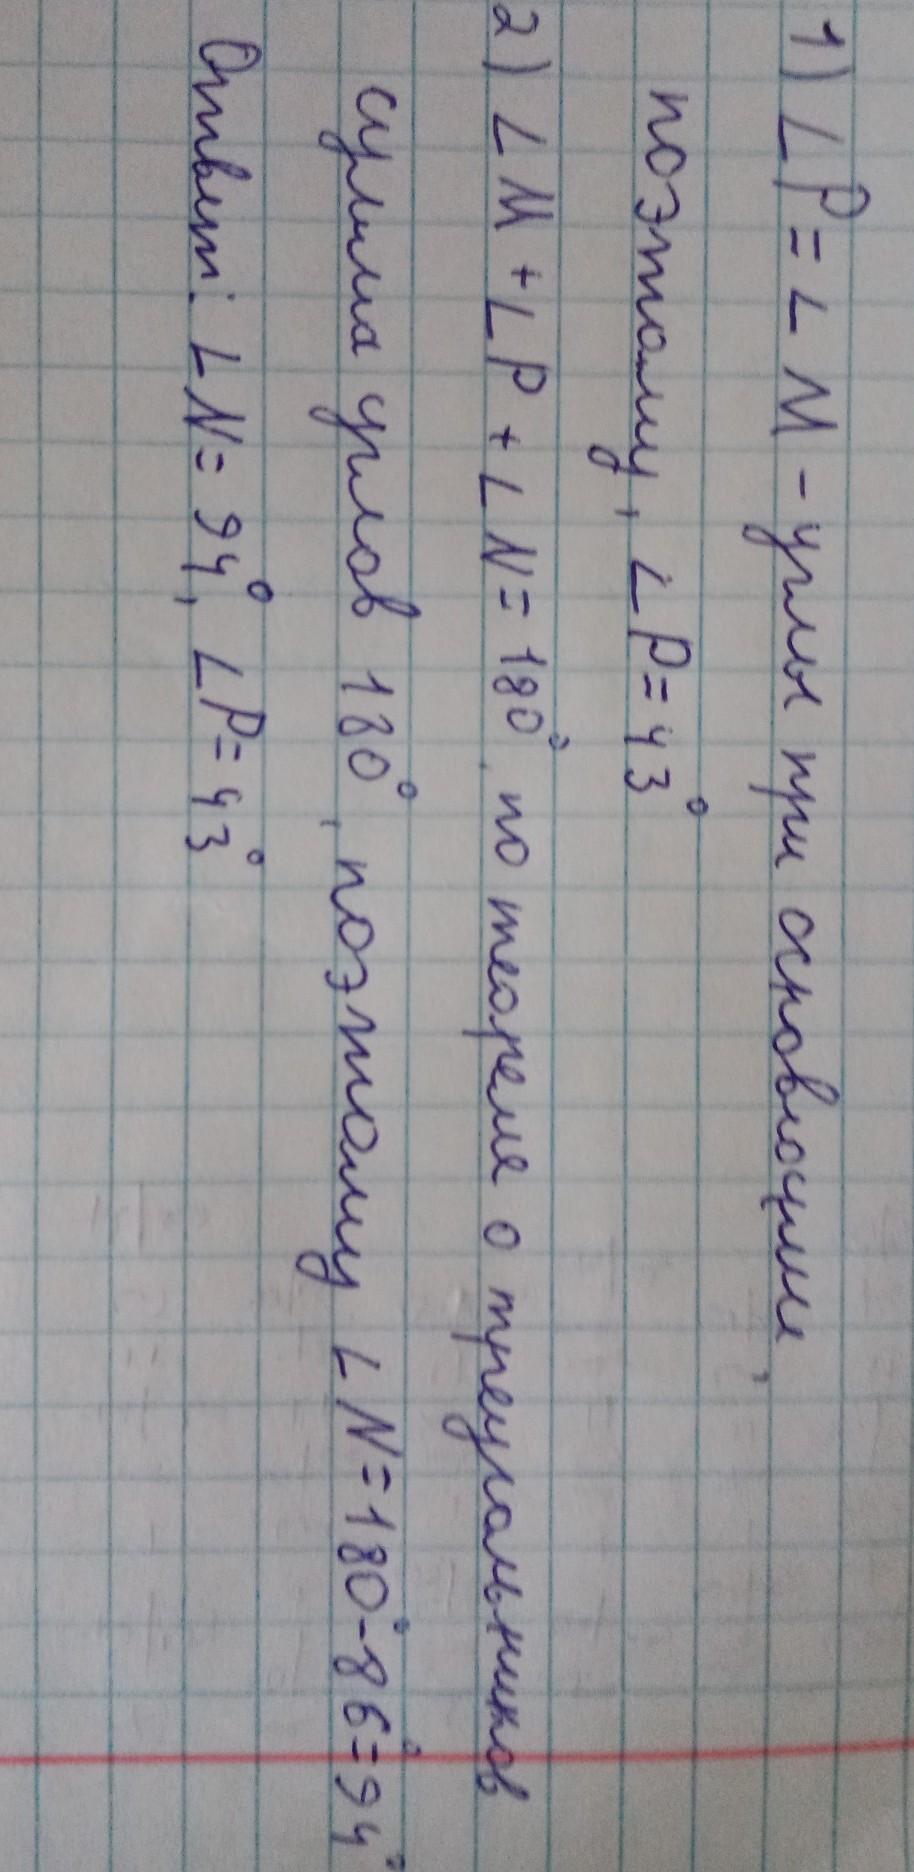 1) ∠P = ∠M - углы при основющими,
поэтому, ∠P = 43°
2) ∠M + ∠P + ∠N = 180°, по теореме о треугольников
сумма углов 180°, поэтому ∠N = 180° - 86° = 94°
Ответ: ∠N = 94°, ∠P = 43°